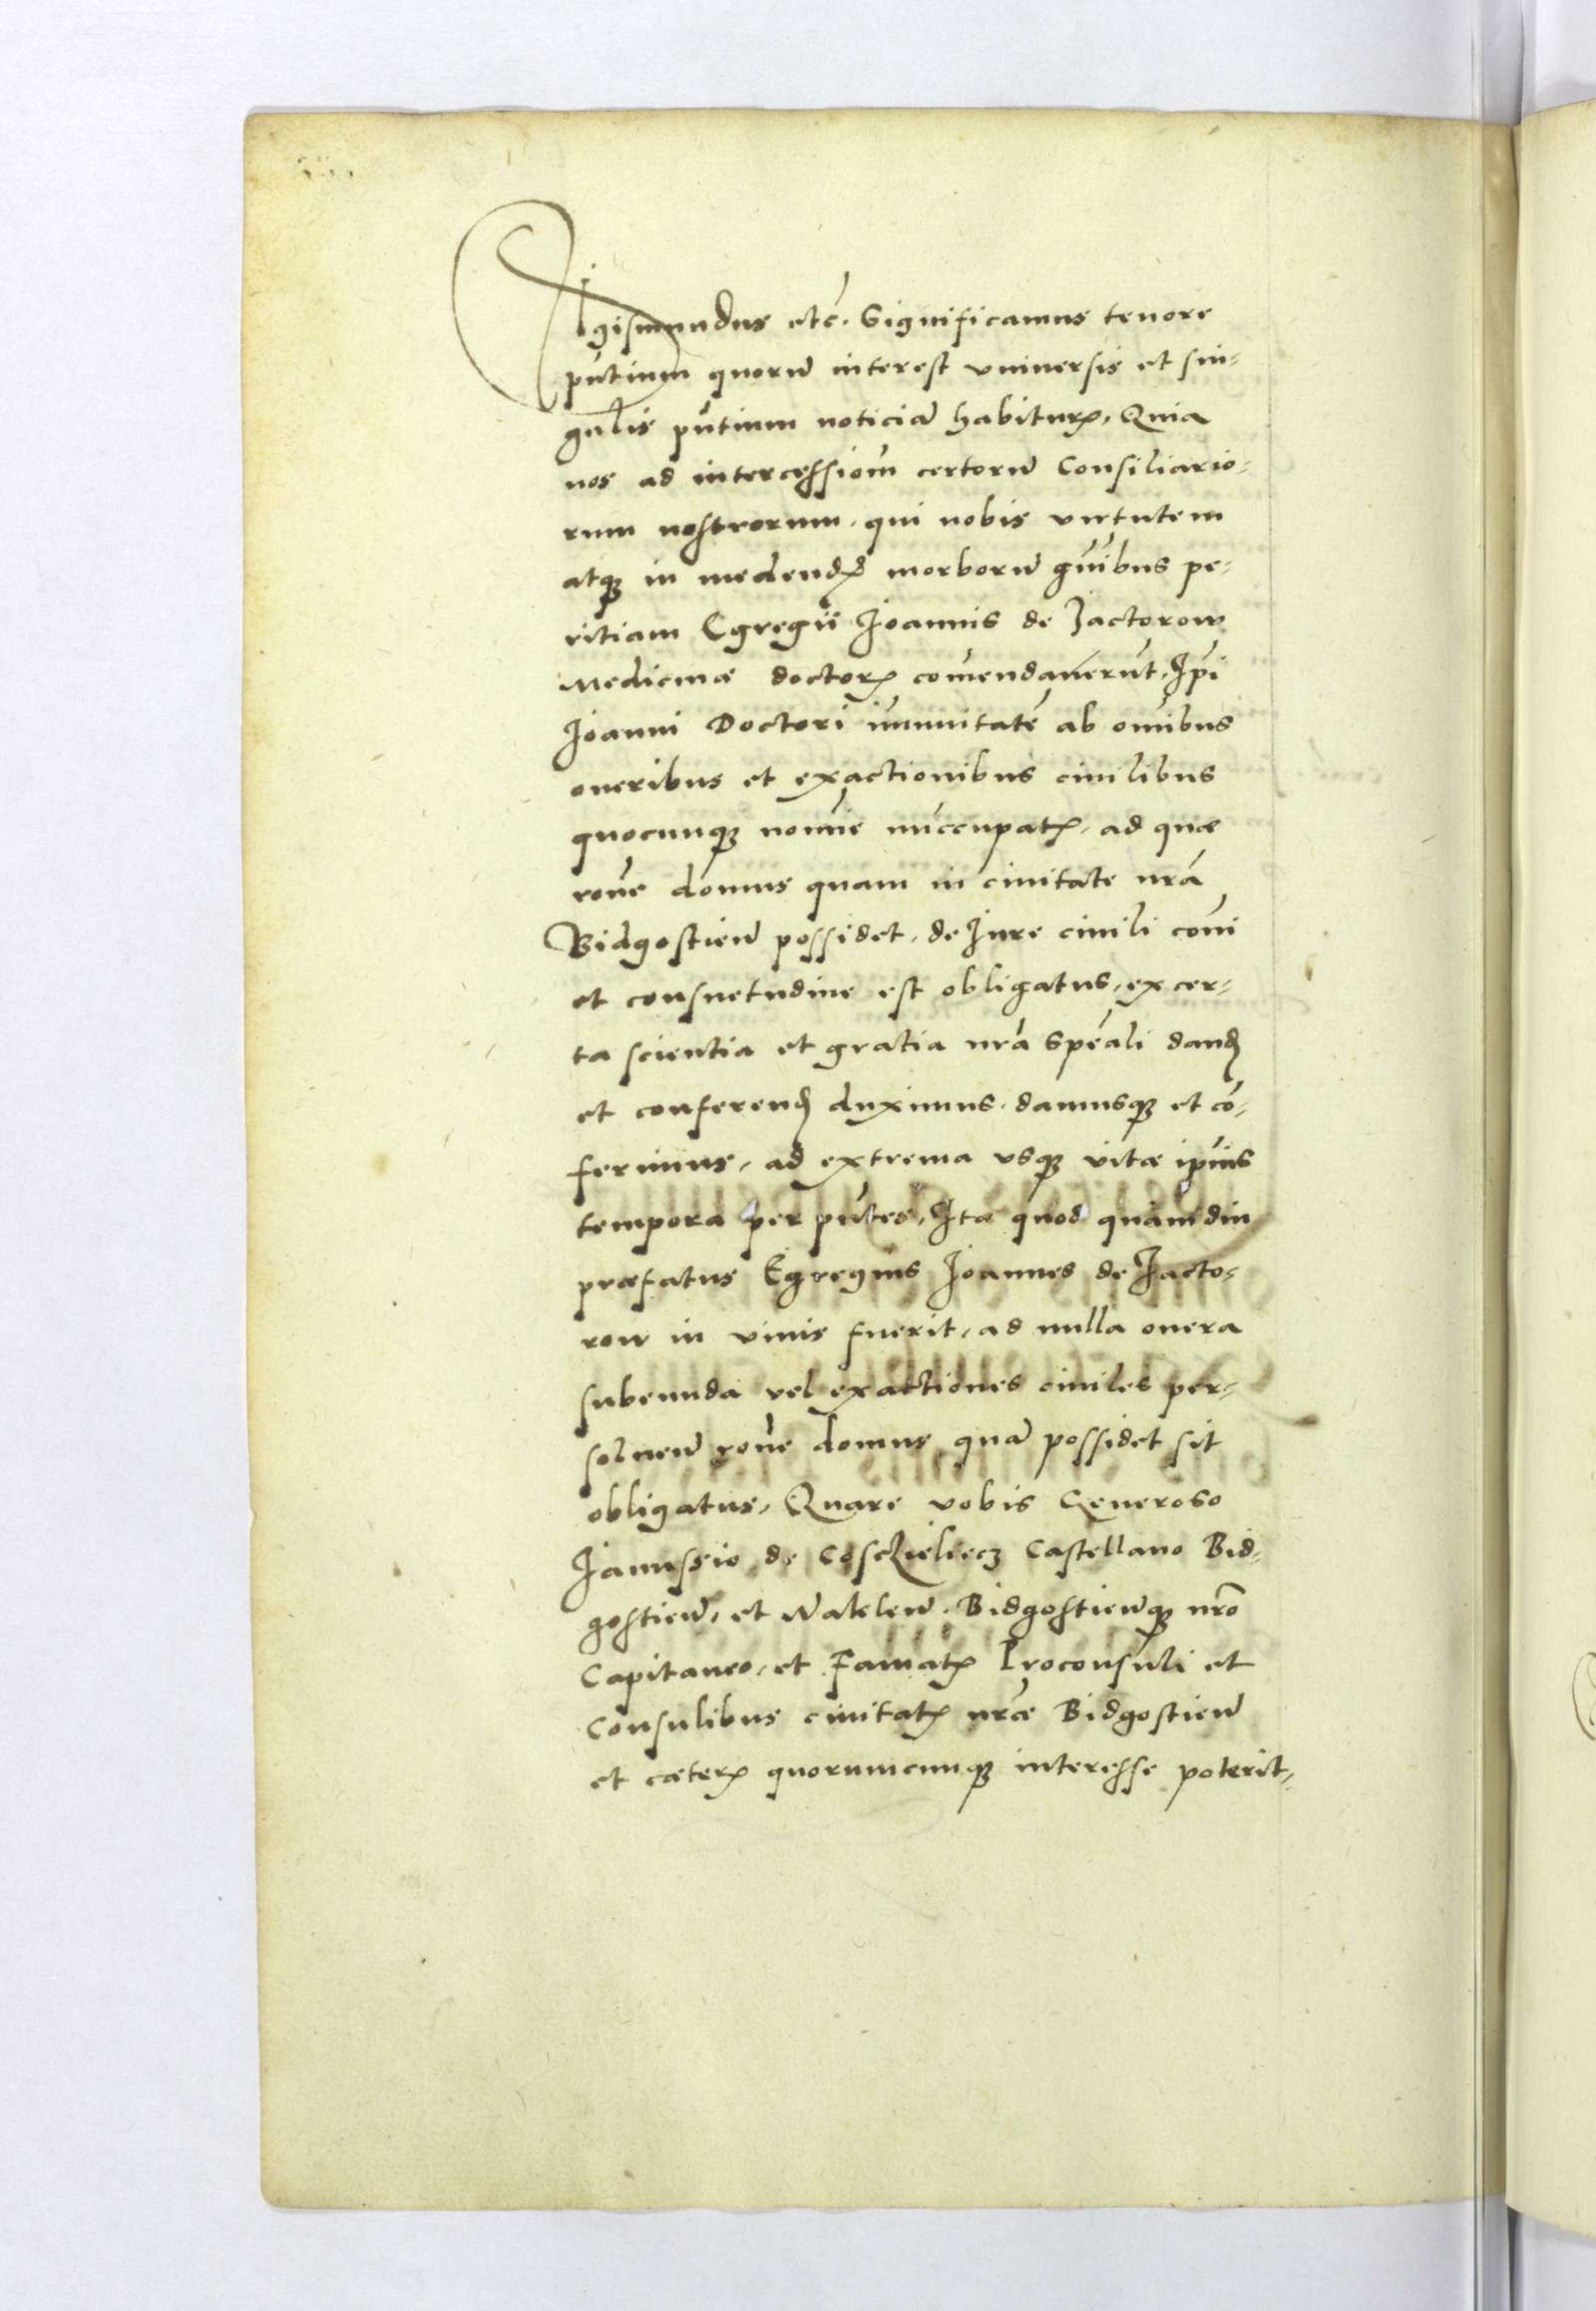 Sigismundus etc̃. Significamus tenore
pñtium quorũ interest vniuersis et sin-
gulis pñtium noticiã habiturꝭ, Quia
nos ad intercessiom̃ certorũ Consiliario-
rum nostrorum, qui nobis virtutem
atqꝫ in medendꝭ morborũ gñibus pe-
ritiam Egregii Joannis de Jactorow
Medicinæ doctorꝭ com̃endauerũt, Ip̃i
Joanni Doctori im̃unitatẽ ab om̃ibus
oneribus et exactionibus ciuilibus
quocunqꝫ nom̃ie nuncupatꝭ, ad quæ
rõne domus quam in ciuitate nr̃a
Bidgostieñ possidet, de Jure ciuili com̃i
et consuetudine est obligatus, ex cer-
ta scientia et gratia nr̃a spẽali dand̃
et conferend̃ duximus, damusqꝫ et cõ-
ferimus, ad extrema vsqꝫ vitæ ip̃ius
tempora per pñtes, Ita quod quamdiu
præfatus Egregius Joannes de Jacto-
row in viuis fuerit, ad nulla onera
subeunda vel exactiones ciuiles per-
solueñ rõne domus quã possidet sit
obligatus, Quare vobis Generoso
Janussio de Cosczieliecz Castellano Bid-
gostieñ, et Nakleñ. Bidgostieñqꝫ nr̃o
Capitaneo, et Famatꝭ Proconsuli et
Consulibus ciuitatꝭ nr̃æ Bidgostieñ
et cæterꝭ quorumcunqꝫ interesse poterit,